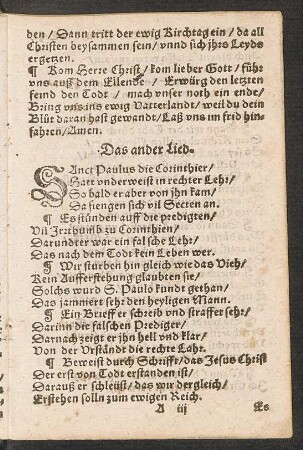 den / Dann tritt der ewig Kirchtag ein / da all
Christen beysammen sein / vnnd sich jhrs Leyds
ergetzen.
¶ Kom Herre Christ / kom lieber Gott / führ
vns auß dem Ellende / Erwürg den letzten
feind den Todt / mach vnser noth ein ende /
Bring vns ins ewig Vatterlandt / weil du dein
Blůt daran hast gewandt / Laß vns im frid hin-
fahren / Amen.
Das ander Lied.
SAnct Paulus die Corinthier /
Hatt vnderweist in rechter Lehr /
So bald er aber von jhn kam /
Da fiengen sich vil Secten an.
¶ Es stůnden auff die predigten /
Vil Irrthumb zu Corinthien /
Darundter war ein falsche Lehr /
Das nach dem Todt kein Leben wer.
¶ Wir stürben hin gleich wie das Vieh /
Kein Aufferstehung glaubten sie /
Solchs wurd S. Paulo kundt gethan /
Das jammert sehr den heyligen Mann.
¶ Ein Brueff er schreib vnd straffet sehr /
Darinn die falschen Prediger /
Darnach zeigt er jhn hell vnd klar /
Von der Vrständt die rechte Lahr.
¶ Beweist durch Schrifft / das Jesus Christ
Der erst von Todt erstanden ist /
Darauß er schleüst / das wir dergleich /
Erstehen solln zum ewigen Reich.
A iij Es